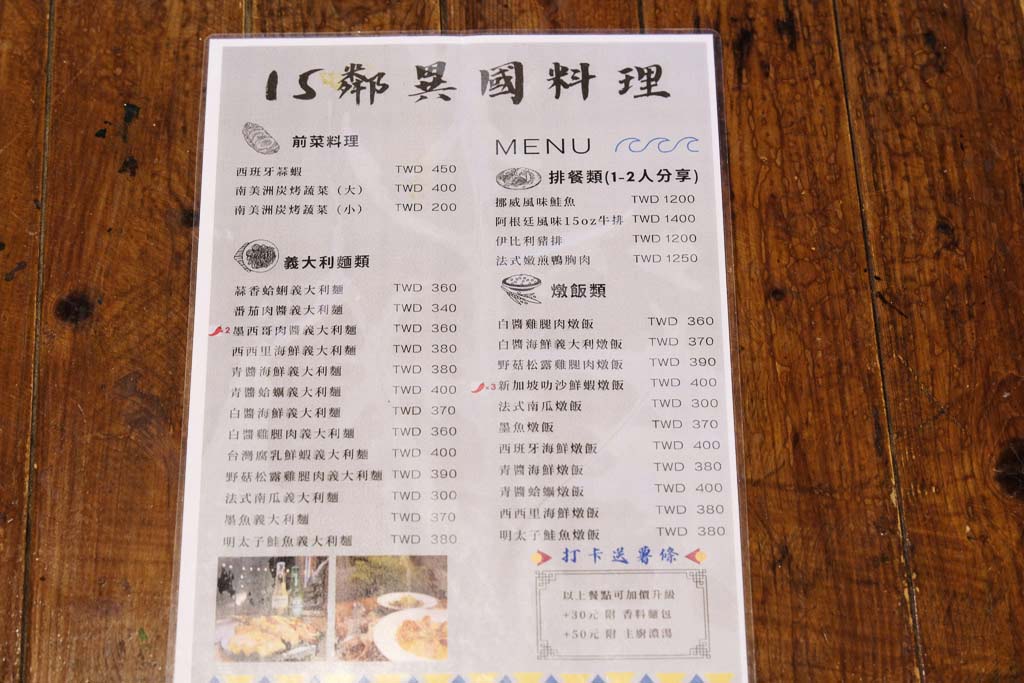 15鄰異國料理
前菜料理
西班牙蒜蝦 TWD 450
南美洲炭烤蔬菜（大） TWD 400
南美洲炭烤蔬菜（小） TWD 200
義大利麵類
蒜香蛤蜊義大利麵 TWD 360
番茄肉醬義大利麵 TWD 340
x2 墨西哥肉醬義大利麵 TWD 360
西西里海鮮義大利麵 TWD 380
青醬海鮮義大利麵 TWD 380
青醬蛤蠣義大利麵 TWD 400
白醬海鮮義大利麵 TWD 370
白醬雞腿肉義大利麵 TWD 360
台灣腐乳鮮蝦義大利麵 TWD 400
野菇松露雞腿肉義大利麵 TWD 390
法式南瓜義大利麵 TWD 300
墨魚義大利麵 TWD 370
明太子鮭魚義大利麵 TWD 380
MENU
排餐類(1-2人分享)
挪威風味鮭魚 TWD 1200
阿根廷風味15oz牛排 TWD 1400
伊比利豬排 TWD 1200
法式嫩煎鴨胸肉 TWD 1250
燉飯類
白醬雞腿肉燉飯 TWD 360
白醬海鮮義大利燉飯 TWD 370
野菇松露雞腿肉燉飯 TWD 390
x3 新加坡叻沙鮮蝦燉飯 TWD 400
法式南瓜燉飯 TWD 300
墨魚燉飯 TWD 370
西班牙海鮮燉飯 TWD 400
青醬海鮮燉飯 TWD 380
青醬蛤蠣燉飯 TWD 400
西西里海鮮燉飯 TWD 380
明太子鮭魚燉飯 TWD 380
打卡送薯條
以上餐點可加價升級
+30元 附 香料麵包
+50元 附 主廚濃湯